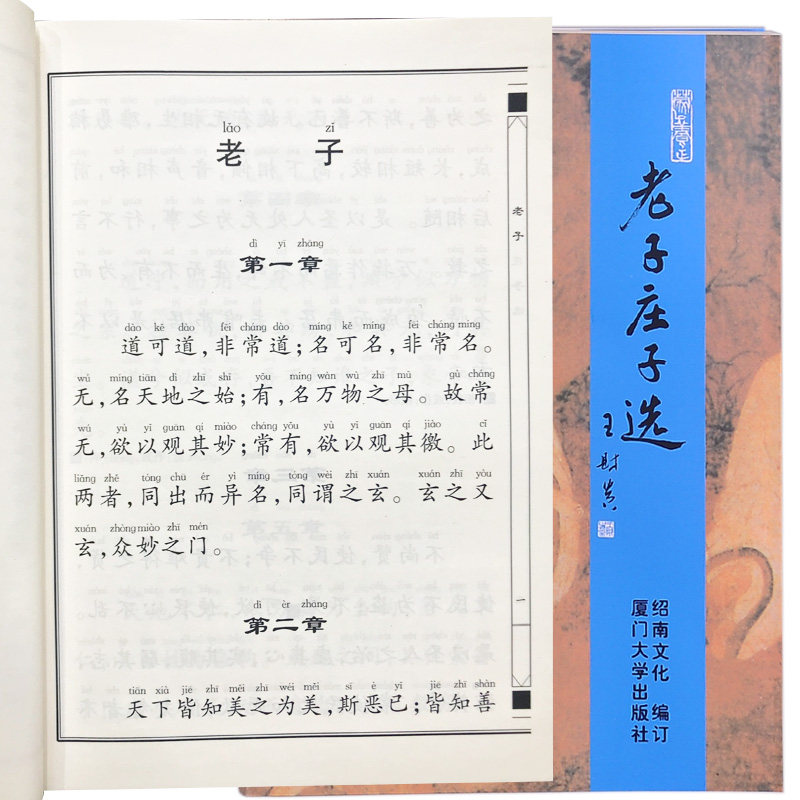 lǎo zǐ
老 子
dì yī zhāng
第一章
dào kě dào fēi cháng dào míng kě míng fēi cháng míng
道可道，非常道；名可名，非常名。
wú míng tiān dì zhī shǐ yǒu míng wàn wù zhī mǔ gù cháng
无，名天地之始；有，名万物之母。故常
wú yù yǐ guān qí miào cháng yǒu yù yǐ guān qí jiào cǐ
无，欲以观其妙；常有，欲以观其徼。此
liǎng zhě tóng chū ér yì míng tóng wèi zhī xuán xuán zhī yòu
两者，同出而异名，同谓之玄。玄之又
xuán zhòng miào zhī mén
玄，众妙之门。
dì èr zhāng
第二章
tiān xià jiē zhī měi zhī wéi měi sī è yǐ jiē zhī shàn
天下皆知美之为美，斯恶已；皆知善
老子
一
老子庄子选
王财贵
绍南文化 编订
厦门大学出版社